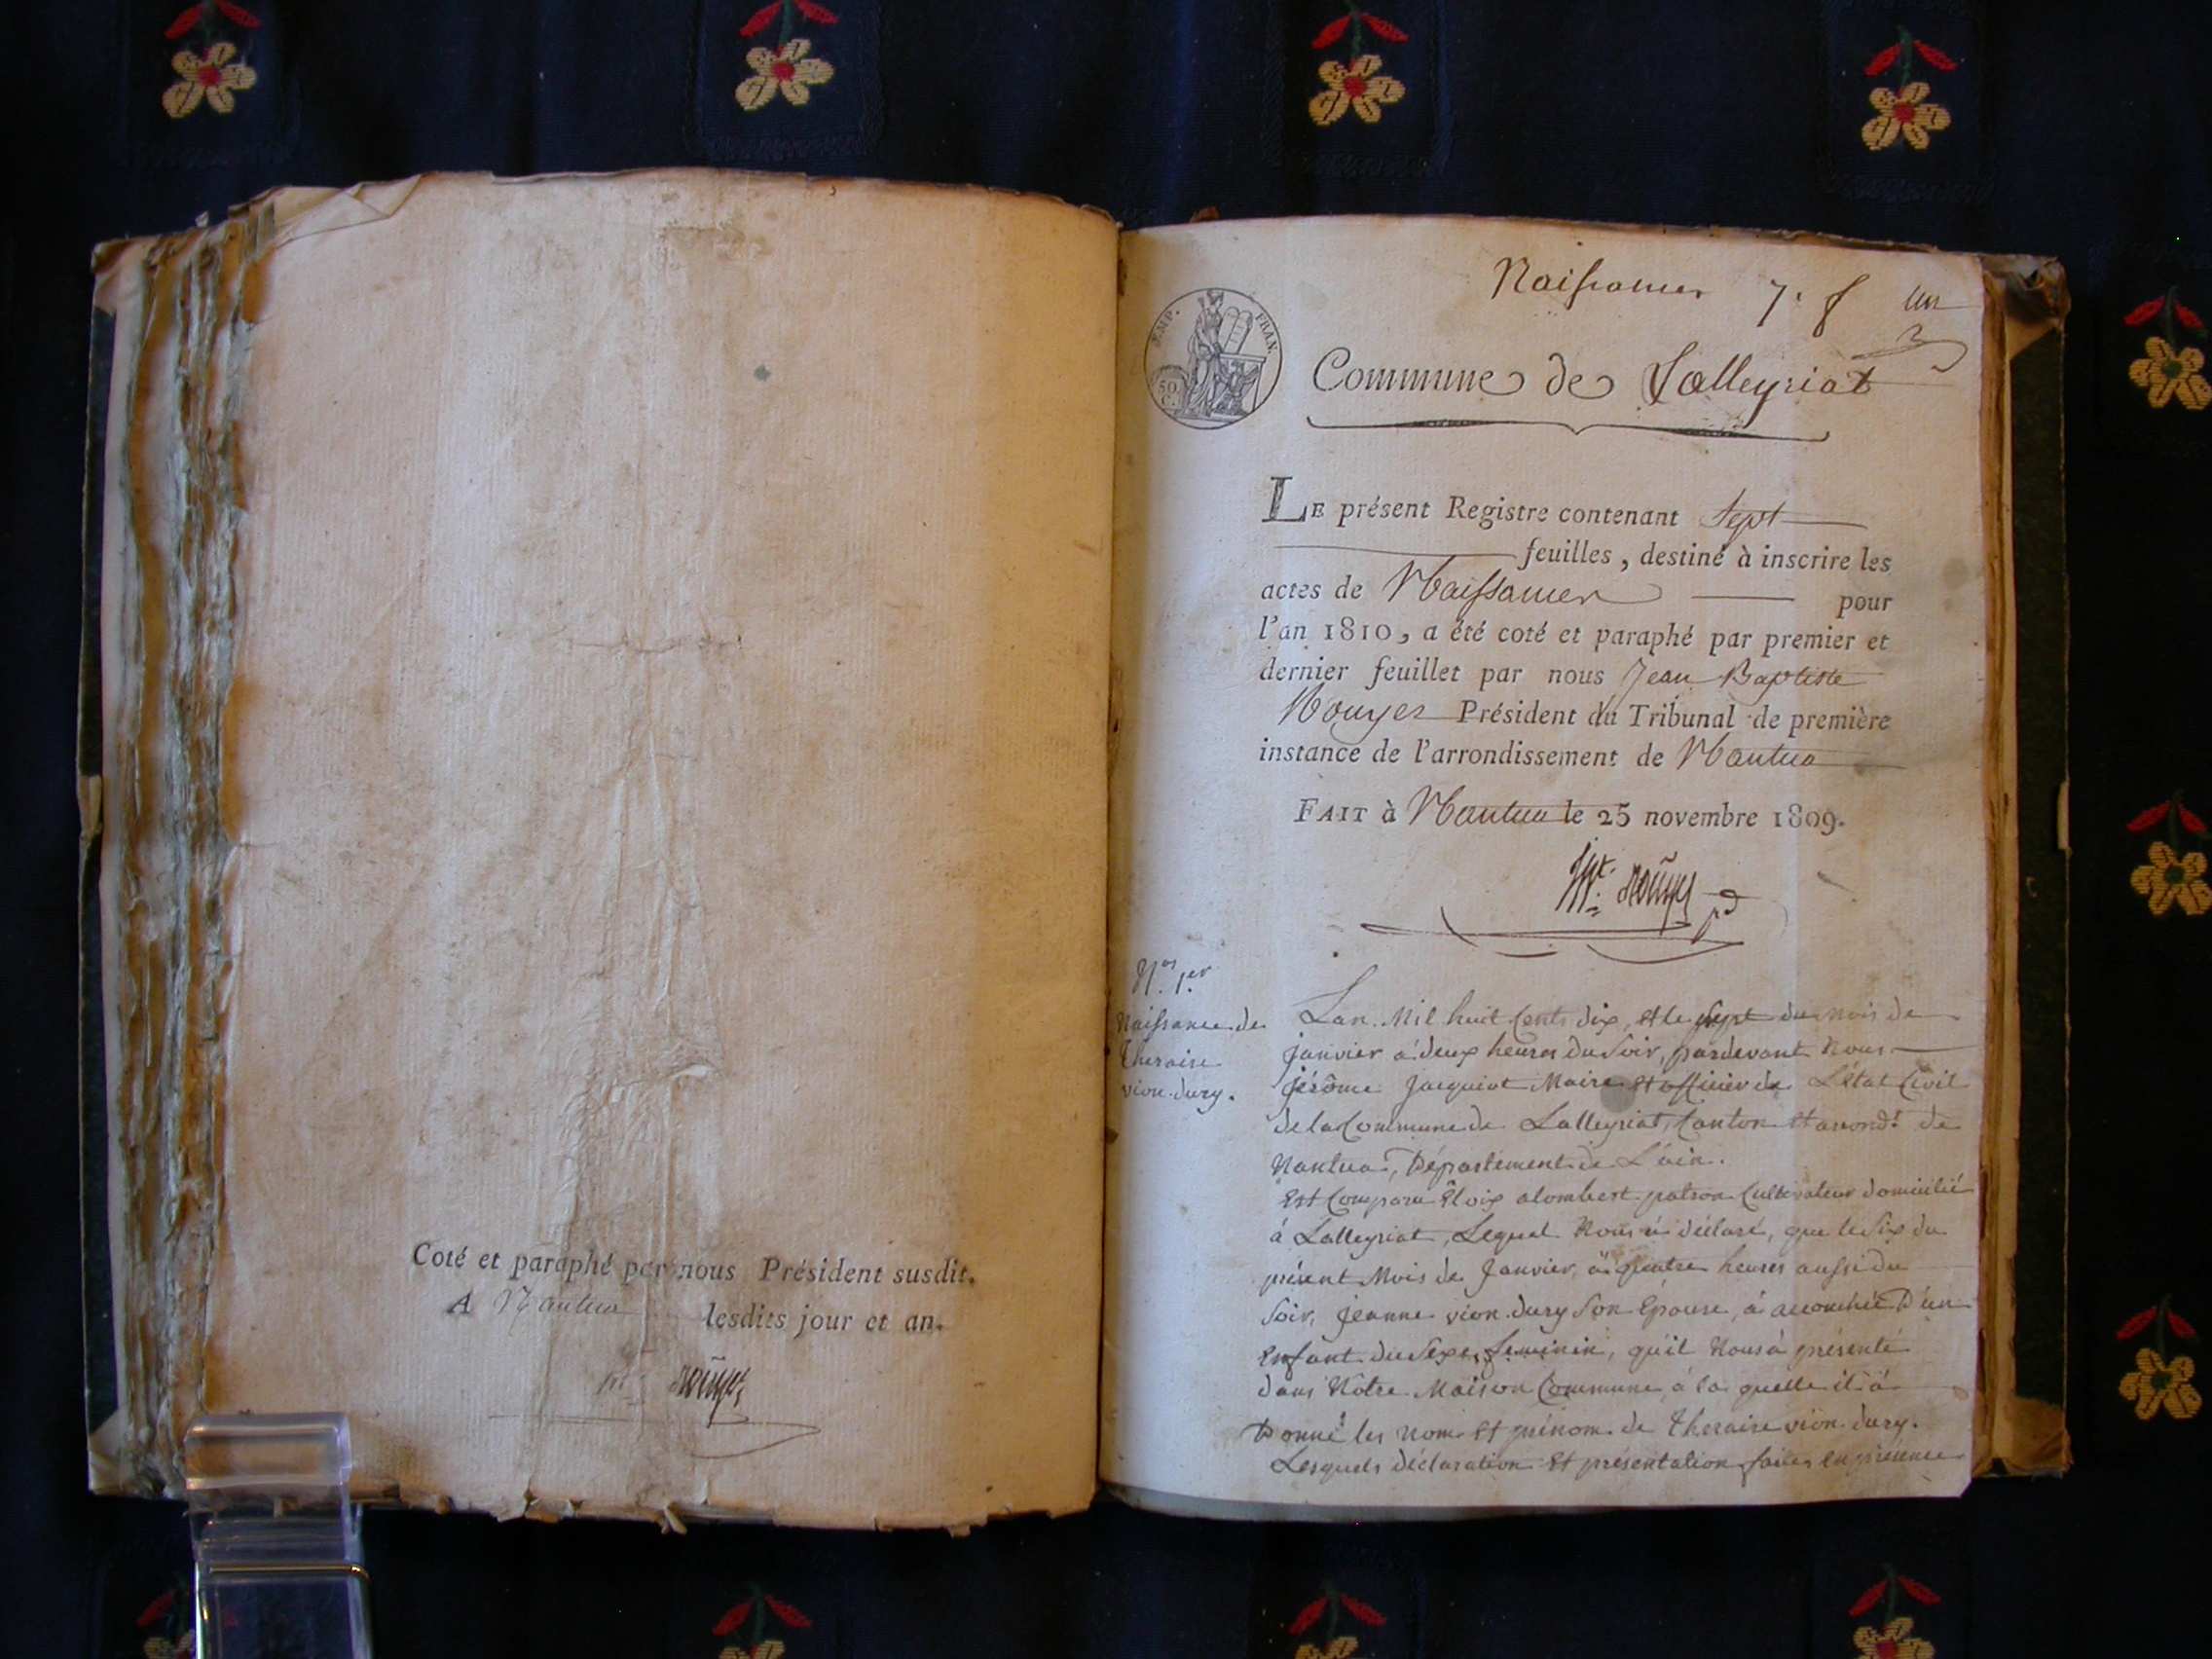 Coté et paraphé par nous Président susdit.
A Nantua lesdits jour et an.
Naissances 7. f un
EMP. FRAN.
50
C.
Commune de Lalleyriat
LE présent Registre contenant Sept
feuilles, destiné à inscrire les
actes de Naissances pour
l'an 1810, a été coté et paraphé par premier et
dernier feuillet par nous Jean Baptiste
Rouyer Président du Tribunal de première
instance de l'arrondissement de Nantua
FAIT à Nantua le 25 novembre 1809.
N.os 1.er
Naissance de
theraise
vion-dury.
Lan Mil huit Cents dix, et le sept du mois de
janvier à deux heures du Soir, pardevant Nous
jérôme jacquiot Maire et officier de L'état Civil
de la Commune de Lalleyriat, Canton et arrond.t de
Nantua, Département de L'ain.
Est Comparu Eloix alombert patron Cultivateur domicilié
à Lalleyriat, Lequel Nous à déclaré, que le Six du
présent Mois de Janvier, à quatre heures aussi du
Soir, jeanne vion-dury Son Epouse, à accouchée D'un
Enfant du Sexe feminin, qu'il Nous à présenté
dans Nôtre Maison Commune, à la quelle il à
Donné les Nom Et prénom de theraise vion-dury.
Lesquels déclaration Et présentation faites en présence